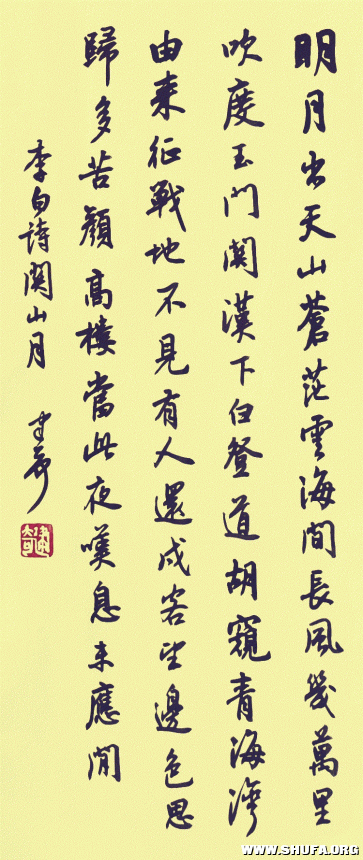 明月出天山蒼茫雲海間長風幾萬里
吹度玉門關漢下白登道胡窺青海灣
由来征戰地不見有人還戍客望邊色思
歸多苦顏高樓當此夜嘆息未應閒
李白詩關山月
WWW.SHUFA.ORG